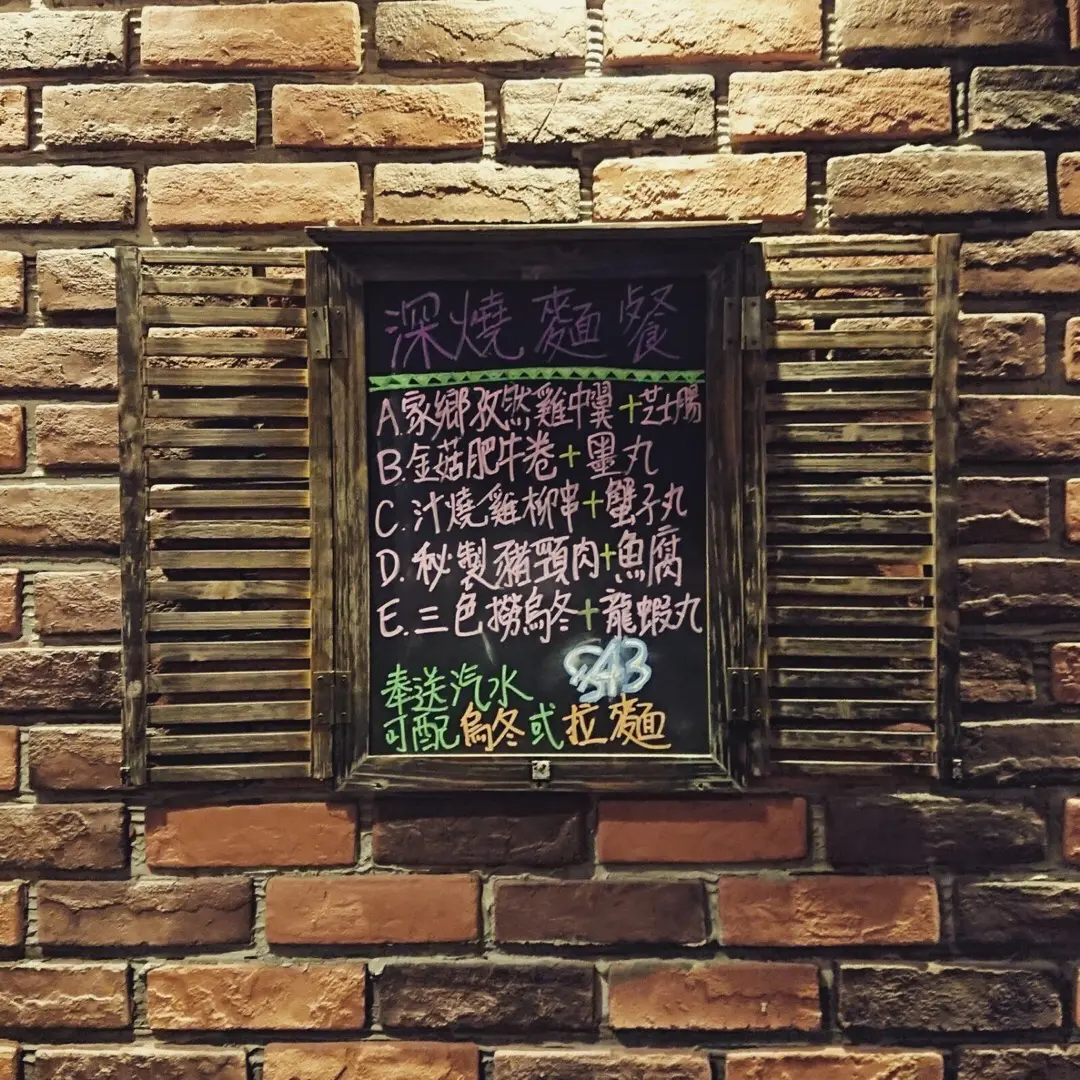 深燒麵餐
A.家鄉孜然雞中翼+芝士腸
B.金菇肥牛卷+墨丸
C.汁燒雞柳串+蟹子丸
D.秘製豬頸肉+魚腐
E.三色撈烏冬+龍蝦丸
奉送汽水 $43
可配烏冬或拉麵